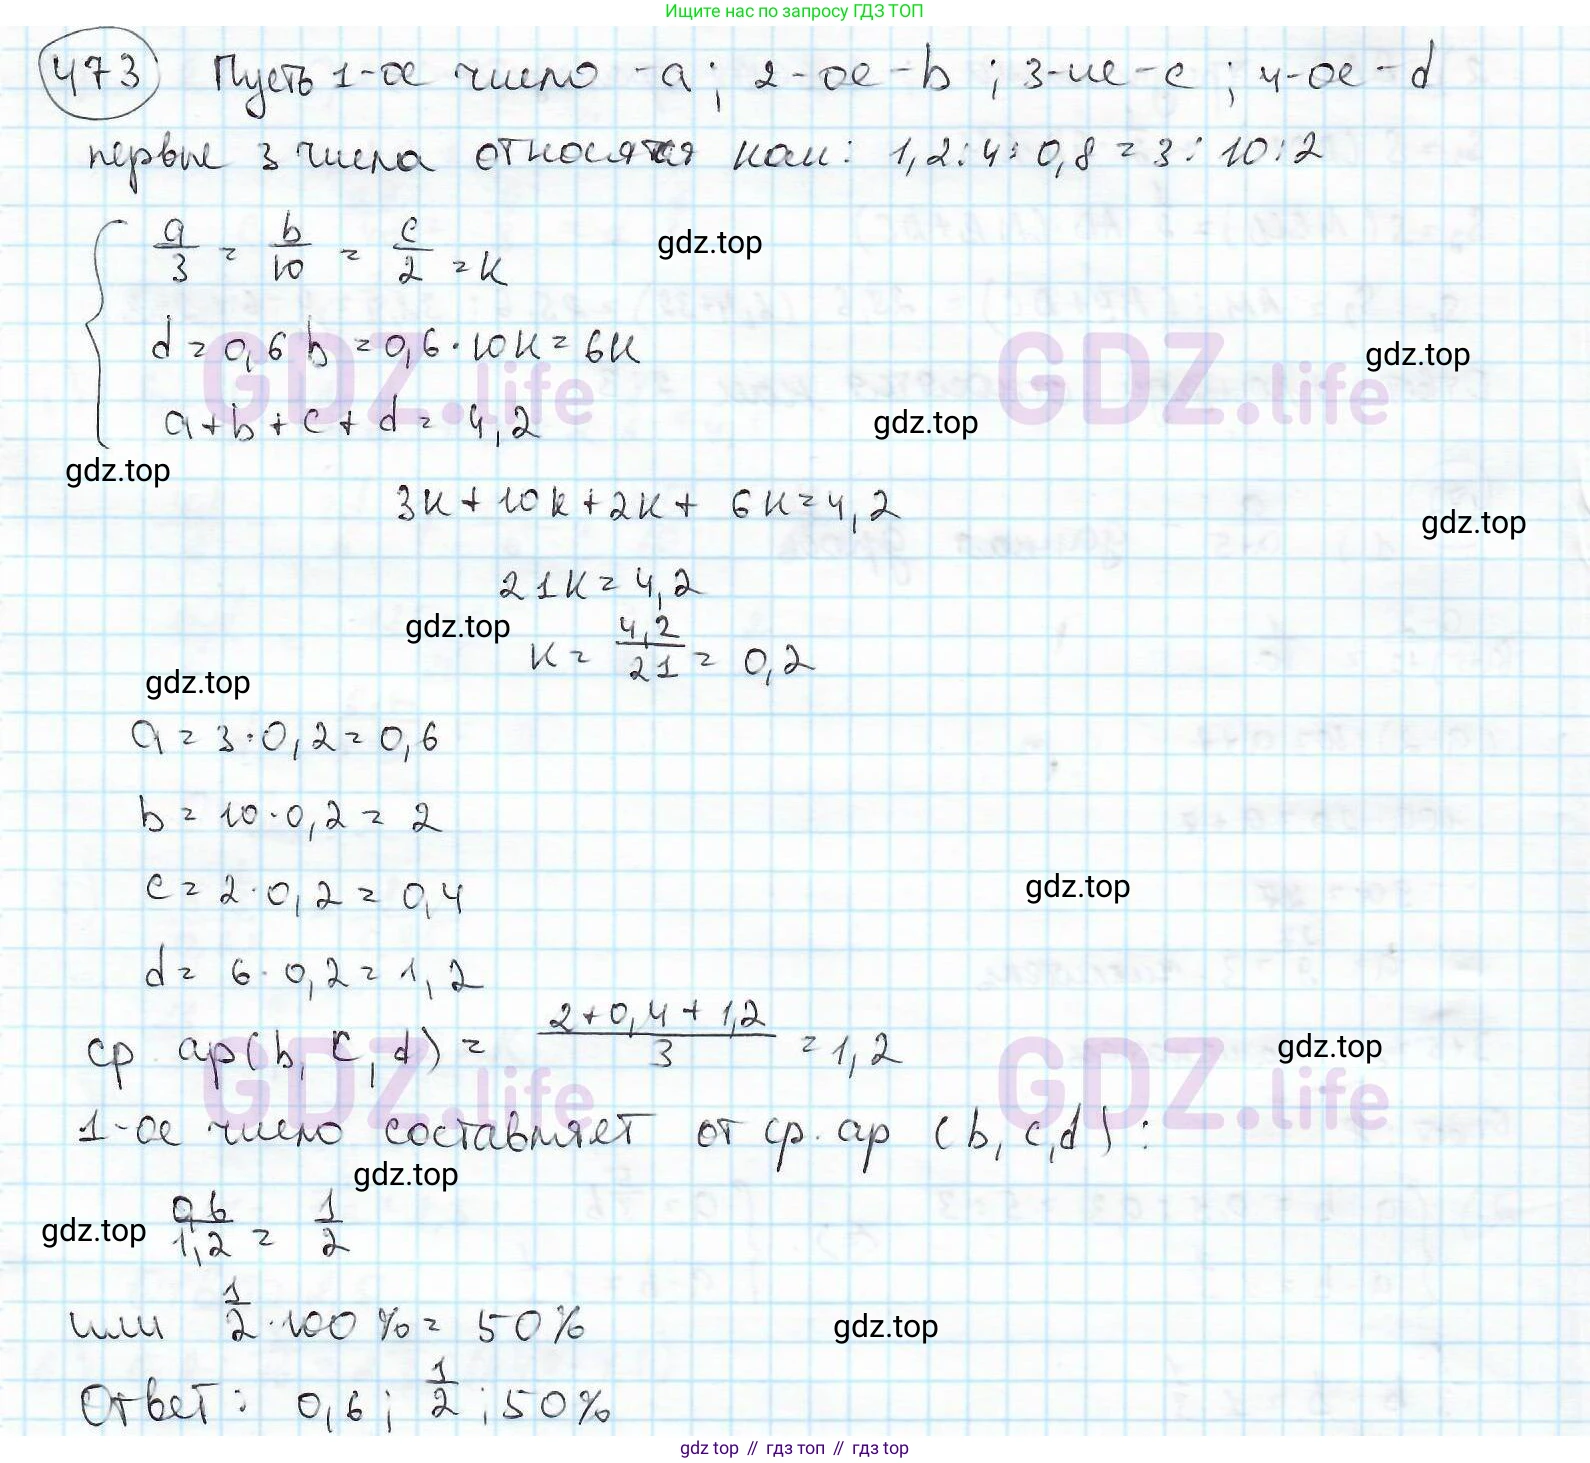 Ищите нас по запросу ГДЗ ТОП
473 Пусть 1-ое число - a; 2-ое - b; 3-ие - c; 4-ое - d
первые 3 числа относятся как: 1,2:4:0,8 = 3:10:2
a/3 = b/10 = c/2 = к
gdz.top
d = 0,6 b = 0,6·10к = 6к
gdz.top
GDZ.life
GDZ.life
a+b+c+d = 4,2
gdz.top
gdz.top
3к + 10к + 2к + 6к = 4,2
gdz.top
21к = 4,2
gdz.top
к = 4,2/21 = 0,2
gdz.top
a = 3·0,2 = 0,6
b = 10·0,2 = 2
c = 2·0,2 = 0,4
gdz.top
d = 6·0,2 = 1,2
ср ар(b, c, d) = 2+0,4+1,2/3 = 1,2
gdz.top
GDZ.life
GDZ.life
1-ое число составляет от ср. ар (b, c, d):
gdz.top
gdz.top
0,6/1,2 = 1/2
или 1/2·100% = 50%
gdz.top
Ответ: 0,6; 1/2; 50%
gdz top // гдз топ // gdz top